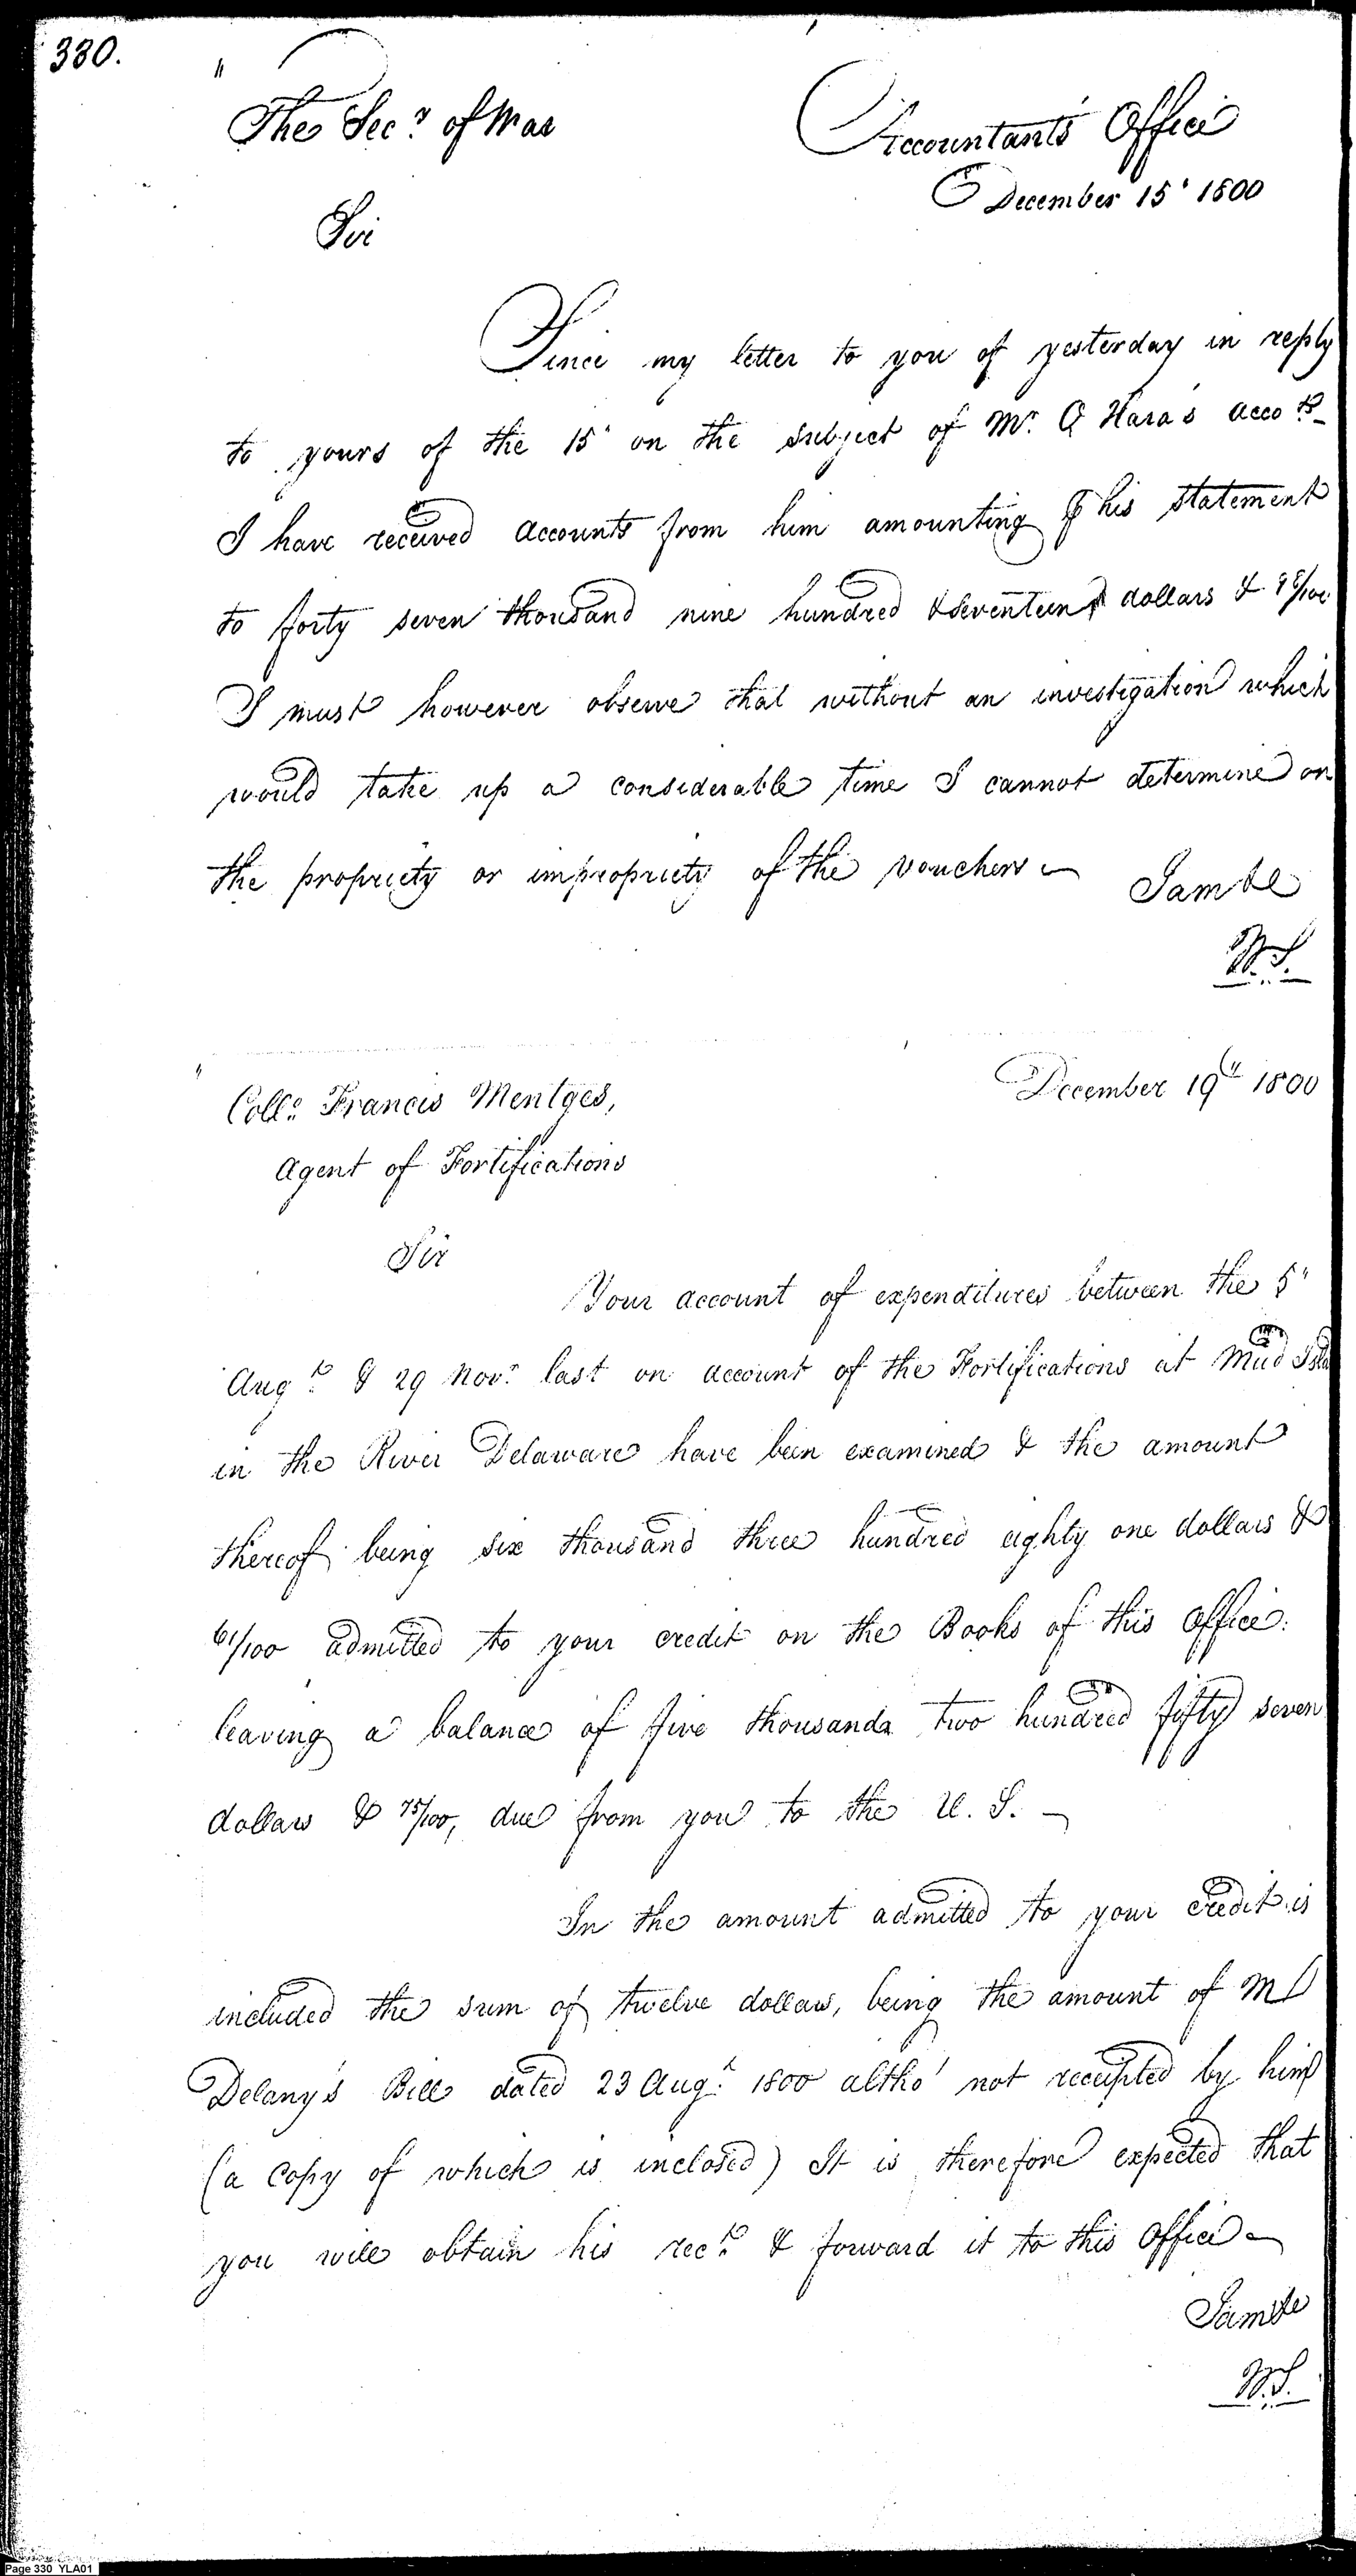 330.
The Secy. of War
Accountants Office
December 15' 1800
Sir
Since my letter to you of yesterday in reply
to yours of the 15' on the subject of Mr. O Hara's accots.
I have received accounts from him amounting his statement
to forty seven thousand nine hundred & seventeen dollars & 98/100
I must however observe that without an investigation which
would take up a considerable time I cannot determine on
the propriety or impropriety of the vouchers
I am &c
W.S.
December 19th 1800
Collo. Francis Mentges,
Agent of Fortifications
Sir
Your account of expenditures between the 5"
Augt. & 29 Novr. last on account of the Fortifications at Mud Isld
in the River Delaware have been examined & the amount
thereof being six thousand three hundred eighty one dollars &
61/100 admitted to your credit on the Books of this Office.
leaving a balance of five thousands two hundred fifty seven
dollars & 75/100, due from you to the U. S. —
In the amount admitted to your credit is
included the sum of twelve dollars, being the amount of
Delany's Bill dated 23 Augt. 1800 altho' not receipted by him
(a Copy of which is inclosed) It is therefore expected that
you will obtain his rect. & forward it to this Office
I am &c
W.S.
Page 330 YLA01